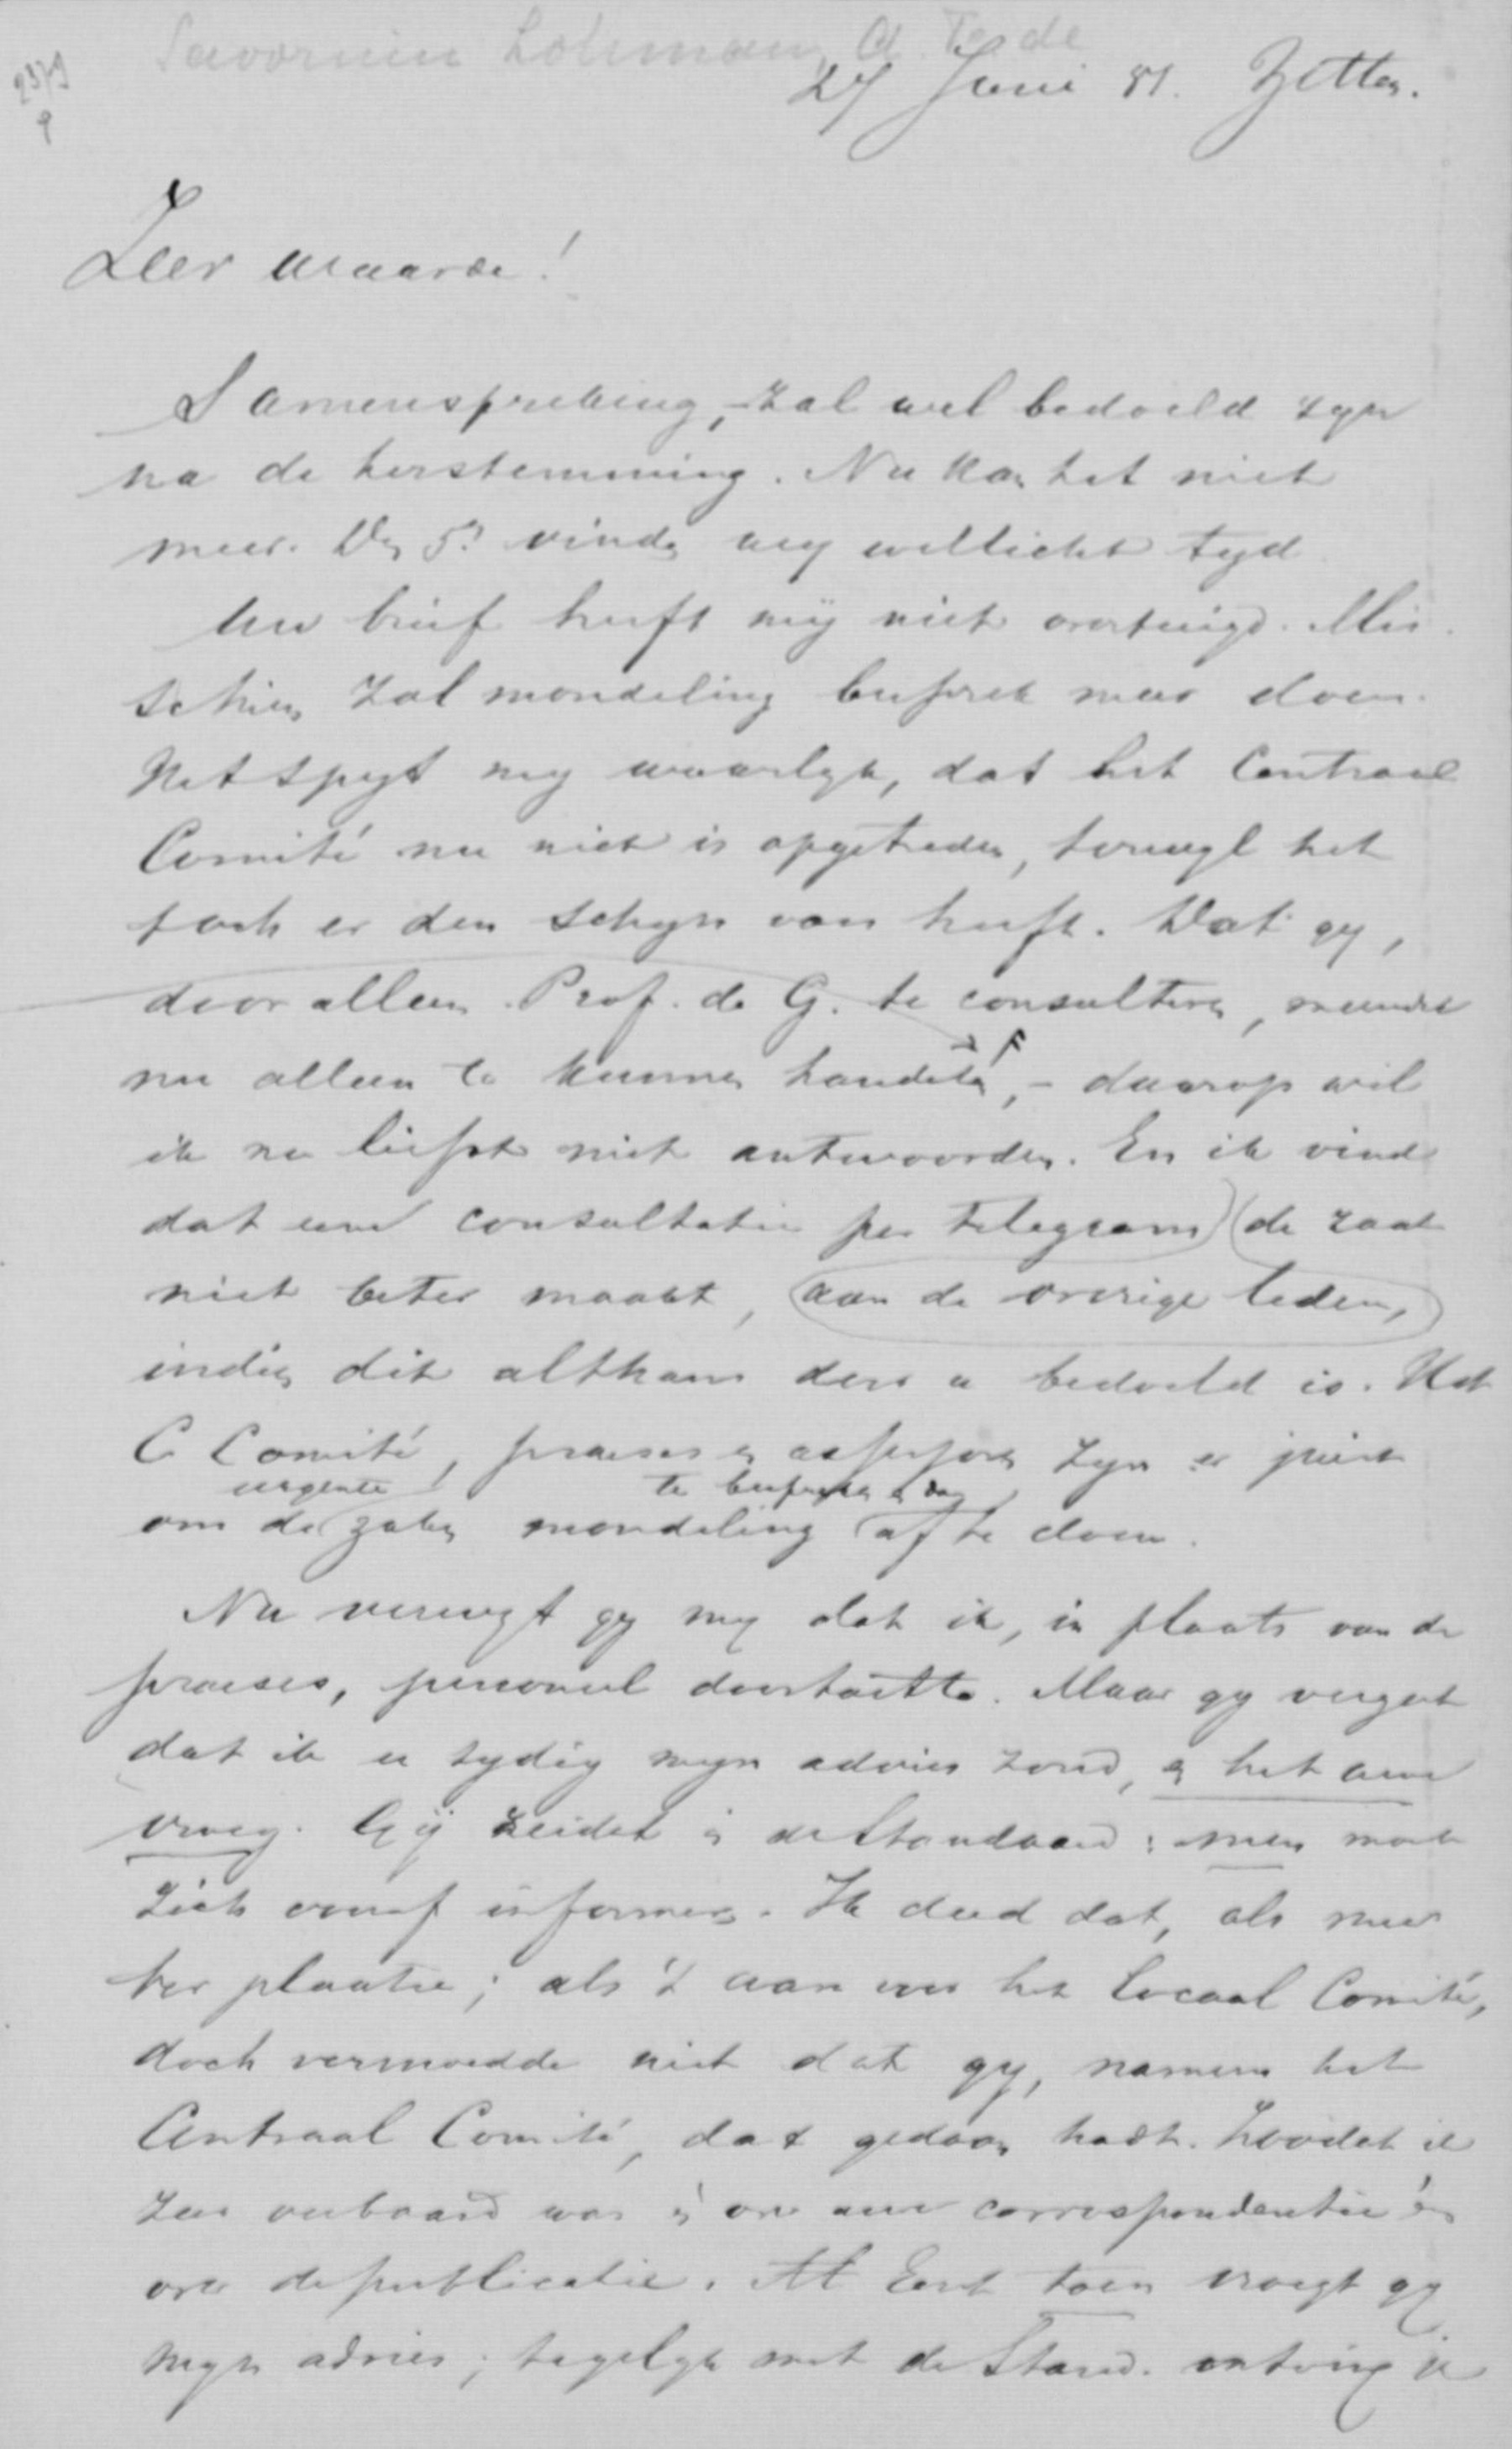 Savornin Lohman, A. F. de
2379
27 Juni 81. Zetten.
Zeer waarde!
Samenspreking, - zal wel bedoeld zyn
na de herstemming. Nu kan het niet
meer. Den 5n vinden wy wellicht tyd
Uw brief heeft mij niet overtuigd. Mis
schien zal mondeling besprek meer doen.
Het spyt my waarlyk, dat het Centraal
Comité nu niet is opgetreden, terwyl het
toch er den schyn van heeft. Dat gy,
door alleen Prof. de G. te consulteren, meendet
nu alleen te kunnen handelen, - daarop wil
ik nu liefst niet antwoorden. En ik vind
dat eene consultatie per telegram (de zaak
niet beter maakt, aan de overige leden,
indien dit althans door u bedoeld is. Het
C Comité, praeses en assessoren zyn er juist
urgente te bespreken en dan
om de zaken mondeling af te doen.
Nu verwyt gy my dat ik, in plaats van de
praeses, personeel doortastte. Maar gy vergeet
dat ik u tydig myn advies zond, en het uwe
vroeg. Gij zeidet in de Standaard: men moet
zich vooraf informeren. Ik deed dat, als meer
ter plaatse; als 't ware voor het Locaal Comité,
doch vermoedde niet dat gy, namens het
Centraal Comité, dat gedaan hadt. Zoodat ik
zeer verbaasd was én over uwe correspondentie én
over de publicatie. Eerst toen vroegt gy
myn advies; tegelyk met de Stand. ontving ik